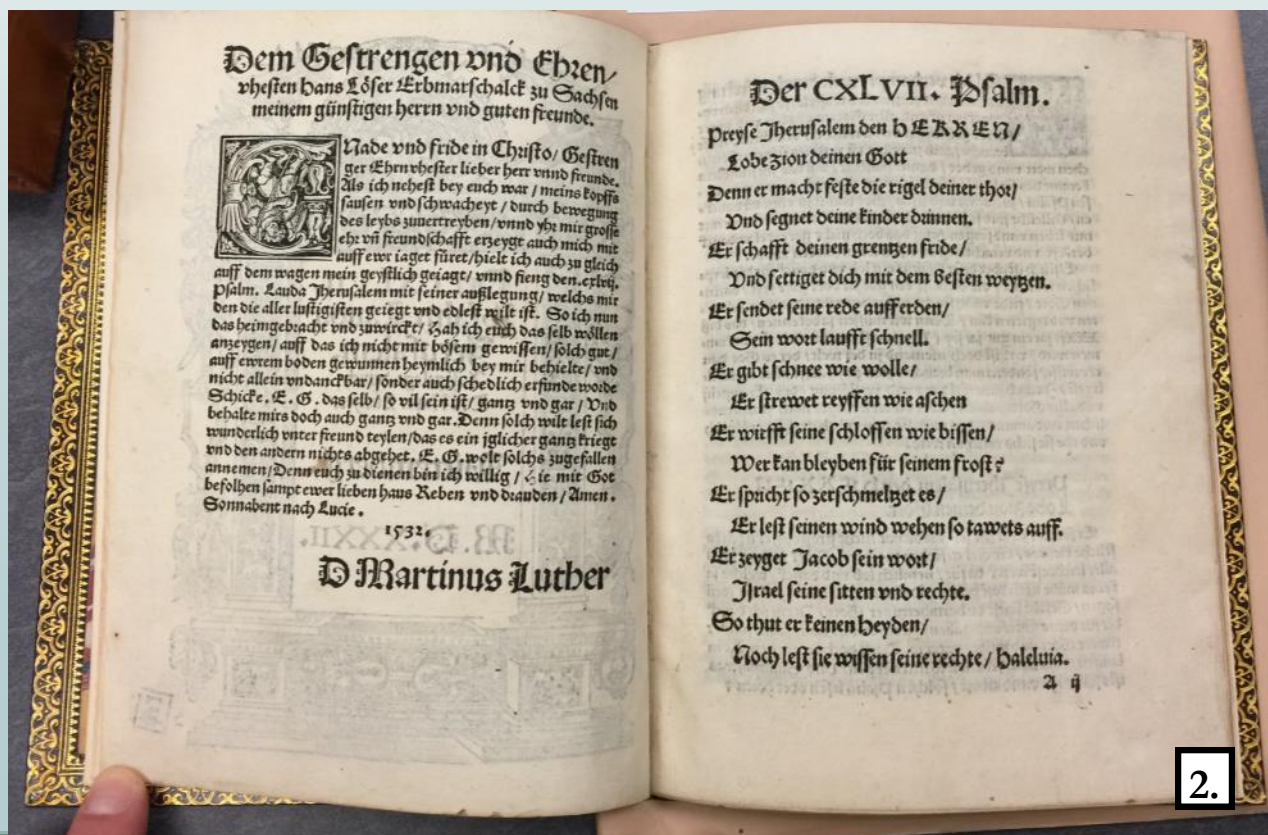 Dem Gestrengen vnd Ehren/
vhesten Hans Löser Erbmarschalck zu Sachsen
meinem günstigen herrn vnd guten freunde.
GNade vnd fride in Christo/ Gestren
ger Ehrnvhester lieber herr vnnd freunde.
Als ich nehest bey euch war / meins kopffs
sausen vnd schwacheyt / durch bewegung
des leybs zuuertreyben/ vnnd yhr mir grosse
ehr vn̄ freundschafft erzeygt auch mich mit
auff ewr iaget füret/ hielt ich auch zu gleich
auff dem wagen mein geystlich geiagt/ vnnd fieng den.cxlvij.
Psalm. Lauda Jherusalem mit seiner außlegung/ welchs mir
den die aller lustigisten geiegt vnd edlest wilt ist. So ich nun
das heimgebracht vnd zuwirckt/ Hab ich euch das selb wöllen
anzeygen/ auff das ich nicht mit bösem gewissen/ solch gut/
auff ewrem boden gewunnen heymlich bey mir behielte/ vnd
nicht allein vndanckbar/ sonder auch schedlich erfunde worde
Schicke. E. G. das selb/ so vil sein ist/ gantz vnd gar / Vnd
behalte mirs doch auch gantz vnd gar. Denn solch wilt lest sich
wunderlich vnter freund teylen/das es ein jglicher gantz kriegt
vnd den andern nichts abgehet. E. G. wolt solchs zugefallen
annemen/ Denn euch zu dienen bin ich willig / Hie mit Got
befolhen sampt ewer lieben haus Reben vnd drauden / Amen.
Sonnabent nach Lucie.
1532.
D Martinus Luther
Der CXLVII. Psalm.
Preyse Jherusalem den HERREN/
Lobe Zion deinen Gott
Denn er macht feste die rigel deiner thor/
Vnd segnet deine kinder drinnen.
Er schafft deinen grentzen fride/
Vnd settiget dich mit dem besten weytzen.
Er sendet seine rede aufferden/
Sein wort laufft schnell.
Er gibt schnee wie wolle/
Er strewet reyffen wie aschen
Er wirfft seine schlossen wie bissen/
Wer kan bleyben für seinem frost?
Er spricht so zerschmeltzet es/
Er lest seinen wind wehen so tawets auff.
Er zeyget Jacob sein wort/
Israel seine sitten vnd rechte.
So thut er keinen Heyden/
Noch lest sie wissen seine rechte/ Haleluia.
A ij
2.